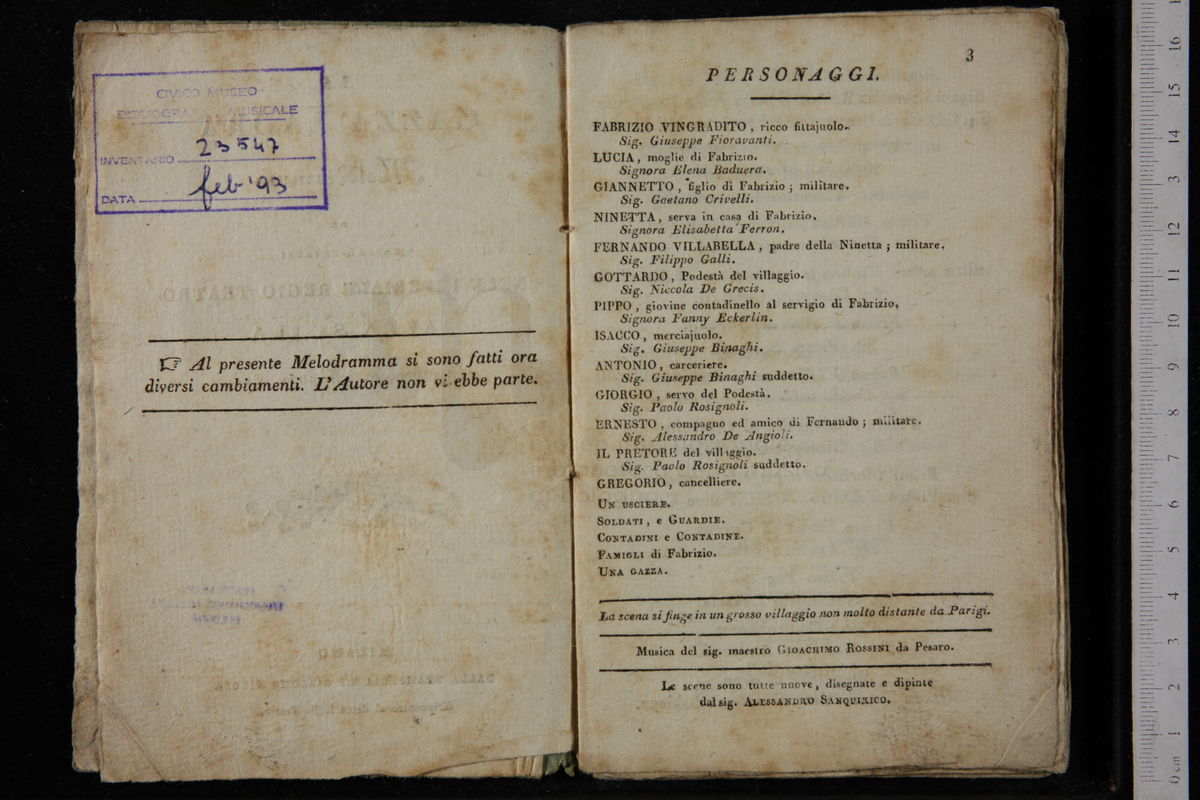 CIVICO MUSEO
BIBLIOGRAFICO MUSICALE
INVENTARIO 23547
DATA feb '93
☞ Al presente Melodramma si sono fatti ora
diversi cambiamenti. L'Autore non vi ebbe parte.
3
PERSONAGGI.
FABRIZIO VINGRADITO, ricco fittajuolo.
Sig. Giuseppe Fioravanti.
LUCIA, moglie di Fabrizio.
Signora Elena Baduera.
GIANNETTO, figlio di Fabrizio; militare.
Sig. Gaetano Crivelli.
NINETTA, serva in casa di Fabrizio.
Signora Elisabetta Ferron.
FERNANDO VILLABELLA, padre della Ninetta; militare.
Sig. Filippo Galli.
GOTTARDO, Podestà del villaggio.
Sig. Niccola De Grecis.
PIPPO, giovine contadinello al servigio di Fabrizio.
Signora Fanny Eckerlin.
ISACCO, merciajuolo.
Sig. Giuseppe Binaghi.
ANTONIO, carceriere.
Sig. Giuseppe Binaghi suddetto.
GIORGIO, servo del Podestà.
Sig. Paolo Rosignoli.
ERNESTO, compagno ed amico di Fernando; militare.
Sig. Alessandro De Angioli.
IL PRETORE del villaggio.
Sig. Paolo Rosignoli suddetto.
GREGORIO, cancelliere.
UN USCIERE.
SOLDATI, e GUARDIE.
CONTADINI e CONTADINE.
FAMIGLI di Fabrizio.
UNA GAZZA.
La scena si finge in un grosso villaggio non molto distante da Parigi.
Musica del sig. maestro GIOACHIMO ROSSINI da Pesaro.
Le scene sono tutte nuove, disegnate e dipinte
dal sig. ALESSANDRO SANQUIRICO.
0 cm 1 2 3 4 5 6 7 8 9 10 11 12 13 14 15 16